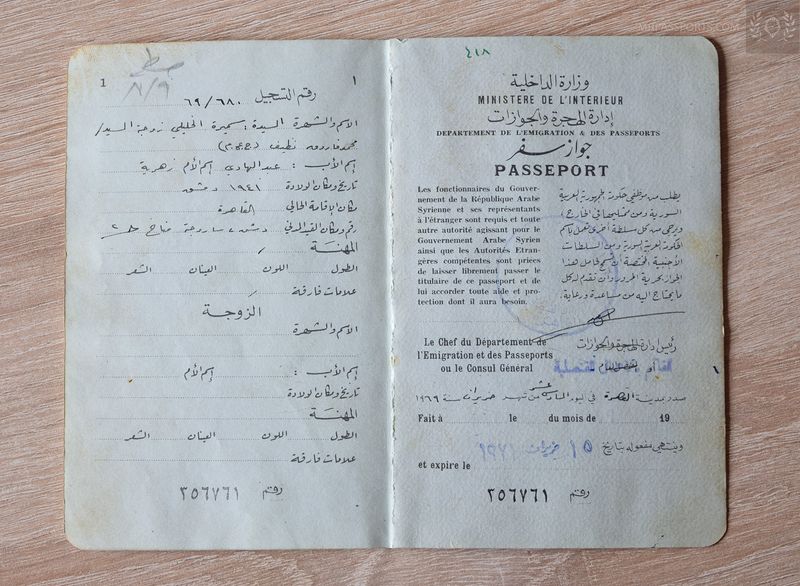 1
١
٨/٩
رقم التسجيل ٦٩/٦٨٠
الاسم والشهرة السيدة : سميرة الخليلي زوجة السيد /
محمد فاروق نظيف (ج.ع.م)
إسم الأب : عبد الهادي إسم الأم زهرية
تاريخ ومكان الولادة ١٩٤١ دمشق
مكان الإقامة الحالي القاهرة
رقم ومكان القيد المدني دمشق ساروجة
المهنة /
الطول اللون العينان الشعر
علامات فارقة /
الزوجة
الاسم والشهرة
إسم الأب : إسم الأم
تاريخ ومكان الولادة
المهنة
الطول اللون العينان الشعر
علامات فارقة
رقم ٣٥٦٧٦١
٤١٨
وزارة الداخلية
MINISTERE DE L'INTERIEUR
إدارة الهجرة والجوازات
DEPARTEMENT DE L'EMIGRATION & DES PASSEPORTS
جواز سفر
PASSEPORT
Les fonctionnaires du Gouver-
nement de la République Arabe
Syrienne et ses représentants
à l'étranger sont requis et toute
autre autorité agissant pour le
Gouvernement Arabe Syrien
ainsi que les Autorités Etran-
gères compétentes sont priees
de laisser librement passer le
titulaire de ce passeport et de
lui accorder toute aide et pro-
tection dont il aura besoin.
يطلب من موظفي حكومة الجمهورية العربية
السورية ومن ممثليها في الخارج
ويرجى من كل سلطة أخرى تعمل باسم
الحكومة العربية السورية ومن السلطات
الأجنبية المختصة أن تسمح لحامل هذا
الجواز بحرية المرور وأن تقدم له كل
ما يحتاج إليه من مساعدة ورعاية.
Le Chef du Département de
l'Emigration et des Passeports
ou le Consul Général
رئيس إدارة الهجرة والجوازات
أو القنصل العام
صدر بمدينة القاهرة في اليوم السادس عشر من شهر حزيران سنة ١٩٦٩
Fait à le du mois de 19
وينتهي مفعوله بتاريخ ١٥ حزيران ١٩٧١
et expire le
رقم ٣٥٦٧٦١